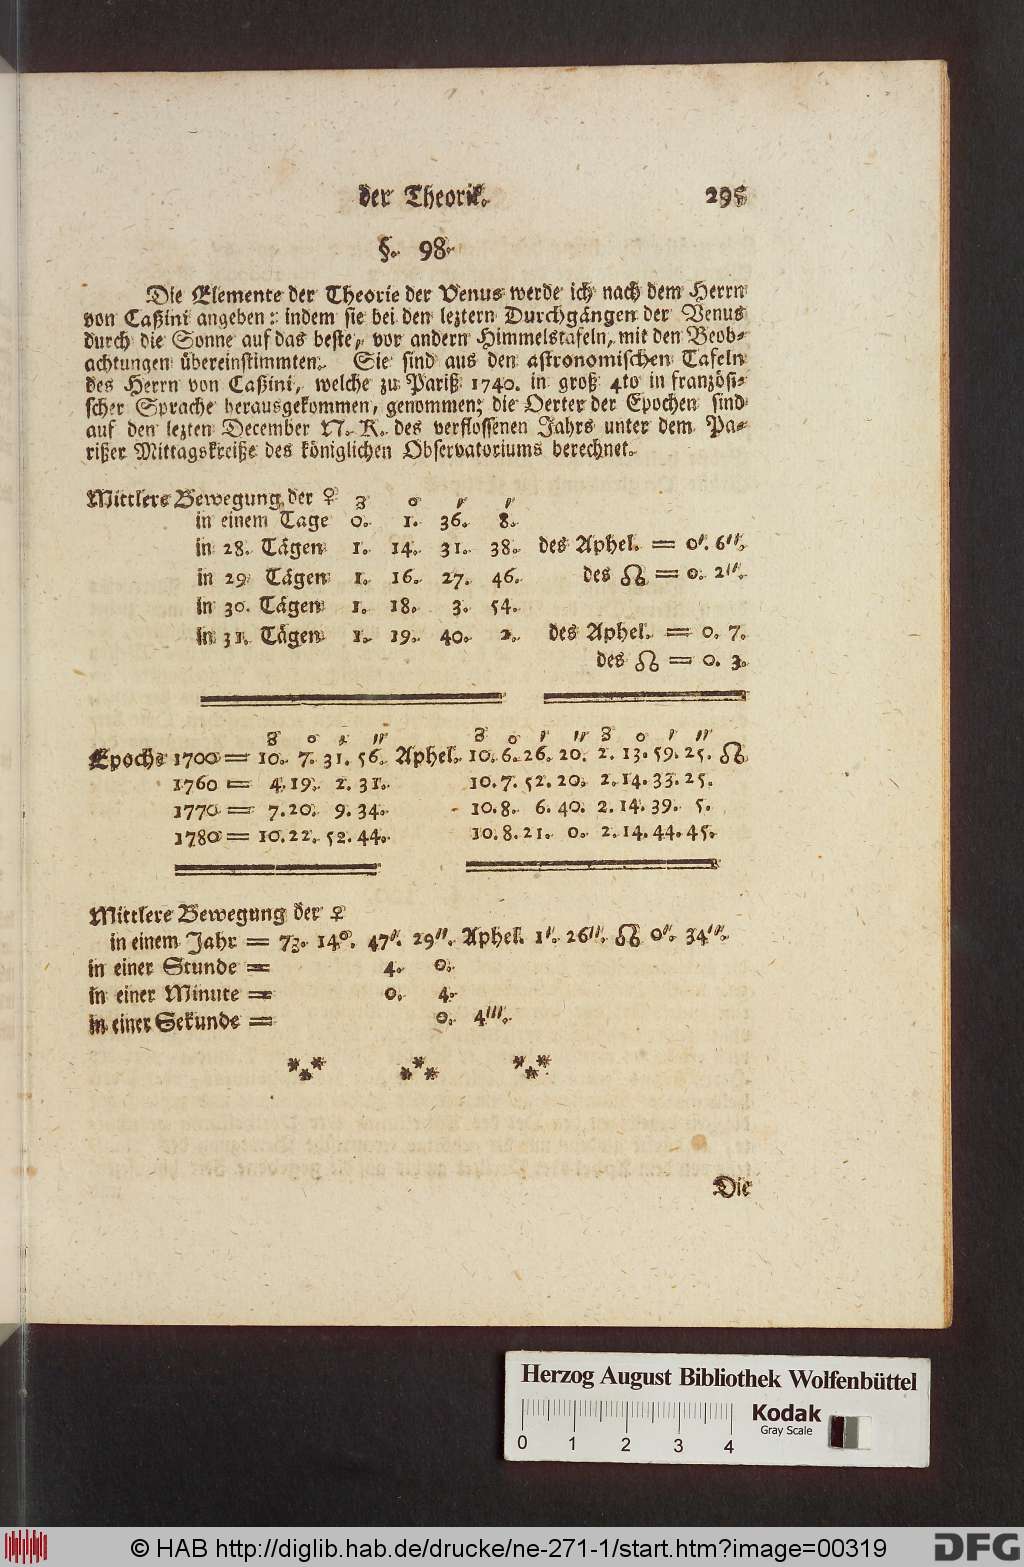 der Theorik. 295
§. 98.
Die Elemente der Theorie der Venus werde ich nach dem Herrn
von Caßini angeben: indem sie bei den leztern Durchgängen der Venus
durch die Sonne auf das beste, vor andern Himmelstafeln, mit den Beob-
achtungen übereinstimmten. Sie sind aus den astronomischen Tafeln
des Herrn von Caßini, welche zu Pariß 1740. in groß 4to in französi-
scher Sprache herausgekommen, genommen; die Oerter der Epochen sind
auf den lezten December N. K. des verflossenen Jahrs unter dem Pa-
rißer Mittagskreiße des königlichen Observatoriums berechnet.
Mittlere Bewegung der ♀ Z o ′ ″
in einem Tage 0. 1. 36. 8.
in 28. Tägen 1. 14. 31. 38. des Aphel. = 0″. 6‴.
in 29 Tägen 1. 16. 27. 46. des ☊ = 0. 2‴.
in 30. Tägen 1. 18. 3. 54.
in 31. Tägen 1. 19. 40. 2. des Aphel. = 0. 7.
des ☊ = 0. 3.
Z o ′ ″ Z o ′ ″ Z o ′ ″
Epochs 1700 = 10. 7. 31. 56. Aphel. 10. 6. 26. 20. 2. 13. 59. 25. ☊
1760 = 4. 19. 2. 31. 10. 7. 52. 20. 2. 14. 33. 25.
1770 = 7. 20. 9. 34. 10. 8. 6. 40. 2. 14. 39. 5.
1780 = 10. 22. 52. 44. 10. 8. 21. 0. 2. 14. 44. 45.
Mittlere Bewegung der ♀
in einem Jahr = 7z. 14°. 47″. 29‴. Aphel. 1″. 26‴. ☊ 0″. 34‴.
in einer Stunde = 4. 0.
in einer Minute = 0. 4.
in einer Sekunde = 0. 4‴.
*** *** ***
Die
Herzog August Bibliothek Wolfenbüttel
0 1 2 3 4
Kodak
Gray Scale
© HAB http://diglib.hab.de/drucke/ne-271-1/start.htm?image=00319
DFG